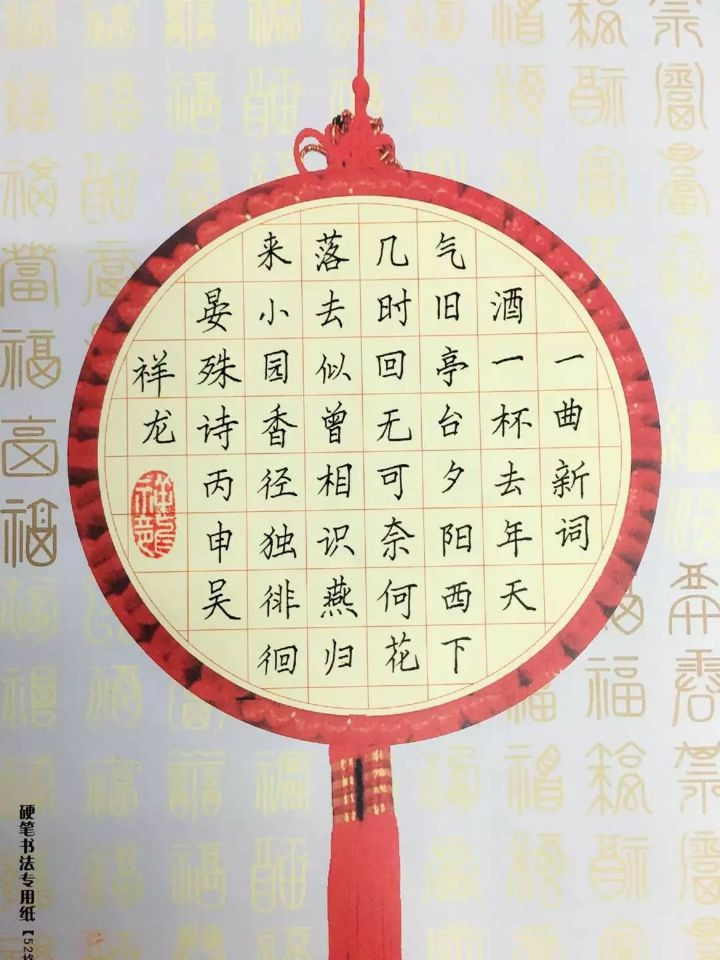 一曲新词
酒一杯去年天
气旧亭台夕阳西下
几时回无可奈何花
落去似曾相识燕归
来小园香径独徘徊
晏殊诗丙申吴
祥龙
祥龙
硬笔书法专用纸【52格